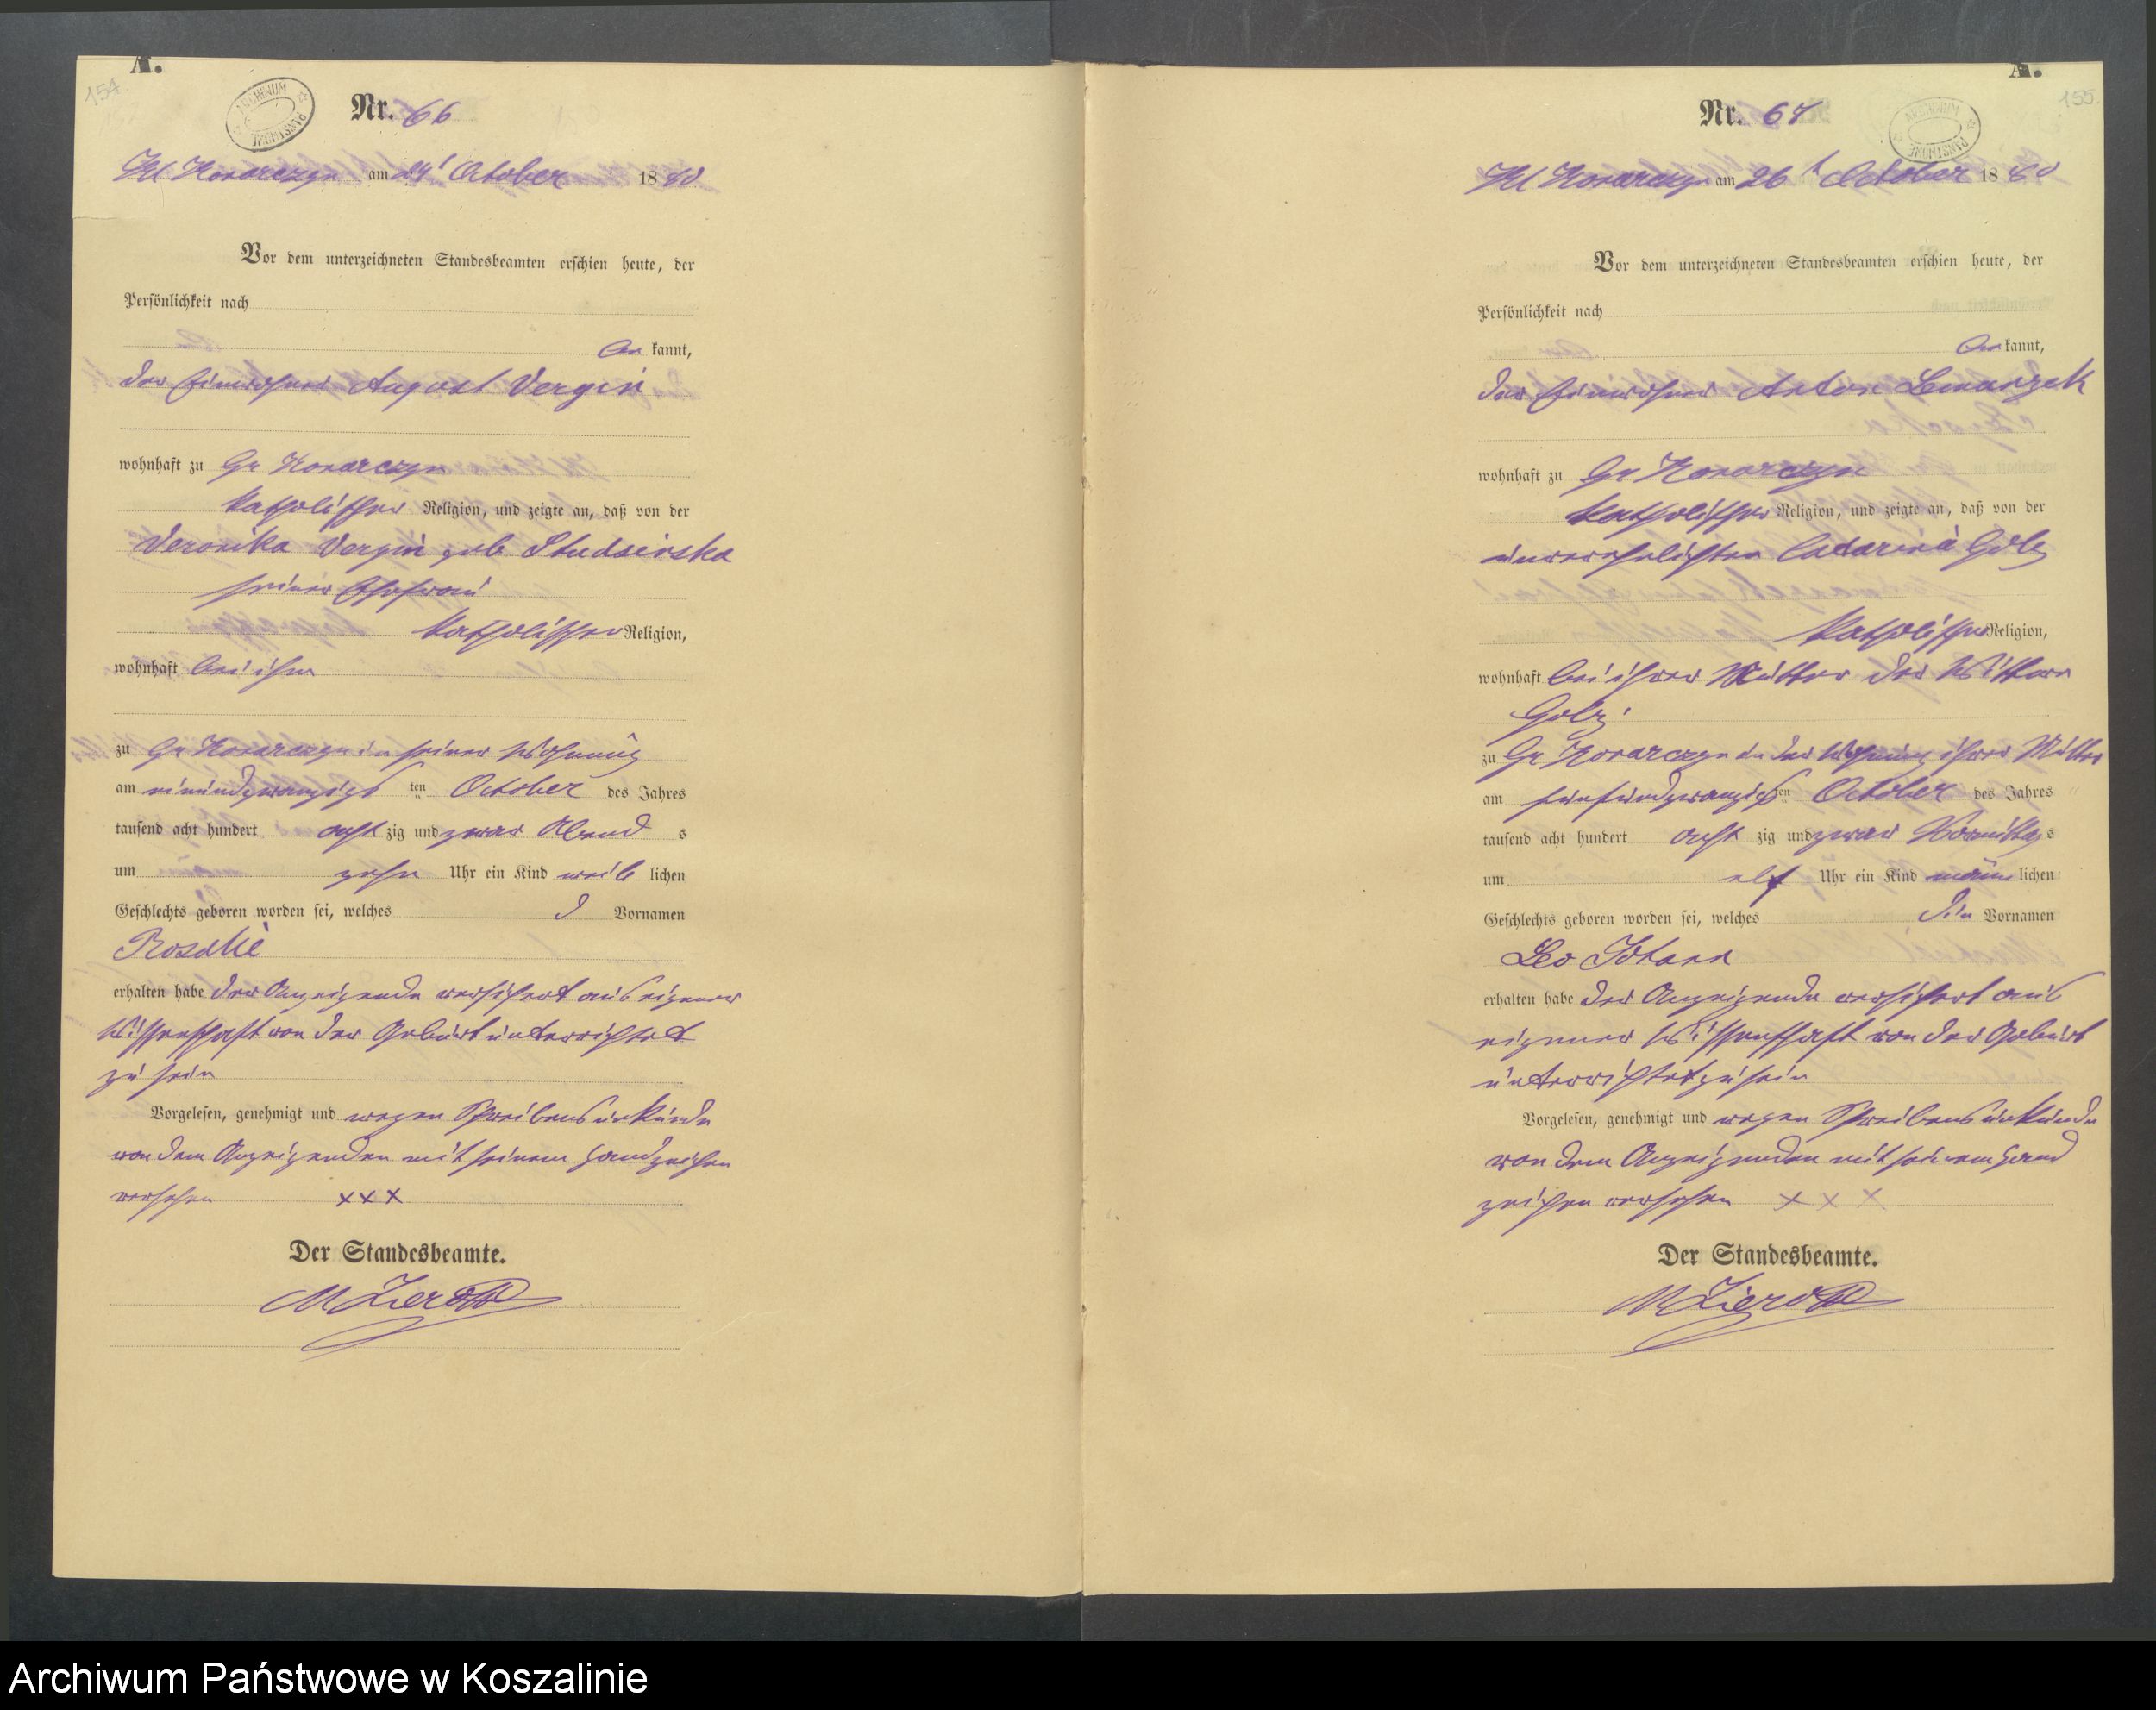 154
A.
ARCHIWUM PAŃSTWOWE
Nr. 66
Kl Konarczyn am 24t October 1880
Vor dem unterzeichneten Standesbeamten erschien heute, der
Persönlichkeit nach
be kannt,
der Einwohner August Vergin
wohnhaft zu Gr Konarczyn
katholischer Religion, und zeigte an, daß von der
Veronika Vergin geb
seiner Ehefrau
katholischer Religion,
wohnhaft bei ihm
zu Gr Konarczyn in seiner Wohnung
am ten October des Jahres
tausend acht hundert acht zig und zwar Abend s
um zehn Uhr ein Kind weib lichen
Geschlechts geboren worden sei, welches d Vornamen
Rosalie
erhalten habe der Anzeigende versichert aus eigener
Wissenschaft von der Geburt unterrichtet
zu sein
Vorgelesen, genehmigt und wegen Schreibensunkunde
von dem Anzeigenden mit seinem Handzeichen
versehen xxx
Der Standesbeamte.
155.
A.
ARCHIWUM PAŃSTWOWE
Nr. 67
Kl Konarczyn am 26t October 1880
Vor dem unterzeichneten Standesbeamten erschien heute, der
Persönlichkeit nach
be kannt,
der Einwohner Anton
wohnhaft zu Gr Konarczyn
katholischer Religion, und zeigte an, daß von der
unverehelichten Catarina Golz
katholischer Religion,
wohnhaft bei ihrer Mutter der Wittwe
Golz
zu Gr Konarczyn in der Wohnung ihrer Mutter
am fünfundzwanzigsten October des Jahres
tausend acht hundert acht zig und zwar Vormittag s
um elf Uhr ein Kind männ lichen
Geschlechts geboren worden sei, welches die Vornamen
Leo Johann
erhalten habe der Anzeigende versichert aus
eigener Wissenschaft von der Geburt
unterrichtet zu sein
Vorgelesen, genehmigt und wegen Schreibensunkunde
von dem Anzeigenden mit seinem Hand
zeichen versehen x x x
Der Standesbeamte.
Archiwum Państwowe w Koszalinie